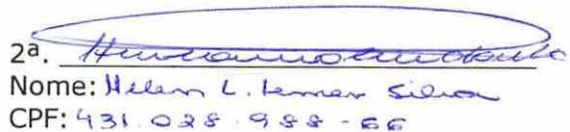 2ª.
Nome: Helen L. Silva
CPF: 431.028.988-66